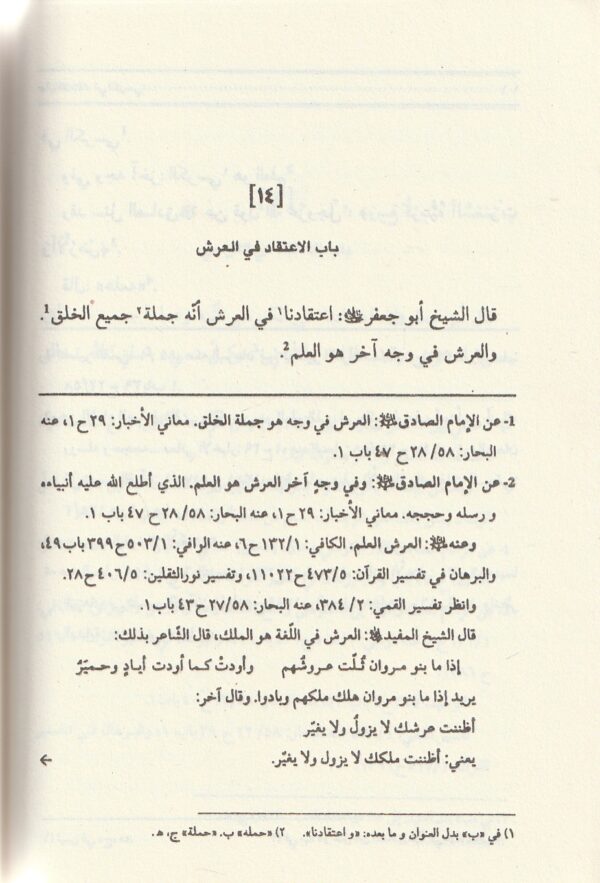 [١٤]
باب الاعتقاد في العرش
قال الشيخ أبو جعفر: اعتقادنا١ في العرش أنّه جملة٢ جميع الخلق.1
والعرش في وجه آخر هو العلم.2
1- عن الإمام الصادق: العرش في وجه هو جملة الخلق. معاني الأخبار: ٢٩ ح ١، عنه
البحار: ٥٨/ ٢٨ ح ٤٧ باب ١.
2- عن الإمام الصادق: وفي وجهٍ آخر العرش هو العلم. الذي أطلع الله عليه أنبياءه
و رسله وحججه. معاني الأخبار: ٢٩ ح ١، عنه البحار: ٥٨/ ٢٨ ح ٤٧ باب ١.
وعنه: العرش العلم. الكافي: ١/ ١٣٢ ح ٦، عنه الوافي: ١/ ٥٠٣ ح ٣٩٩ باب ٤٩،
والبرهان في تفسير القرآن: ٥/ ٤٧٣ ح ١١٠٢٢، وتفسير نورالثقلين: ٥/ ٤٠٦ ح ٢٨.
وانظر تفسير القمي: ٢/ ٣٨٤، عنه البحار: ٥٨/ ٢٧ ح ٤٣ باب ١.
قال الشيخ المفيد: العرش في اللّغة هو الملك، قال الشّاعر بذلك:
إذا ما بنو مروان ثُلّت عروشُهم وأودتْ كما أودت أيادٍ وحميَرُ
يريد إذا ما بنو مروان هلك ملكهم وبادوا. وقال آخر:
أظننت عرشك لا يزولُ ولا يغيّر.
يعني: أظننت ملكك لا يزول ولا يغيّر.
←
١) في «ب» بدل العنوان و ما بعده: «و اعتقادنا». ٢) «حمله» ب. «حملة» ج، هـ.